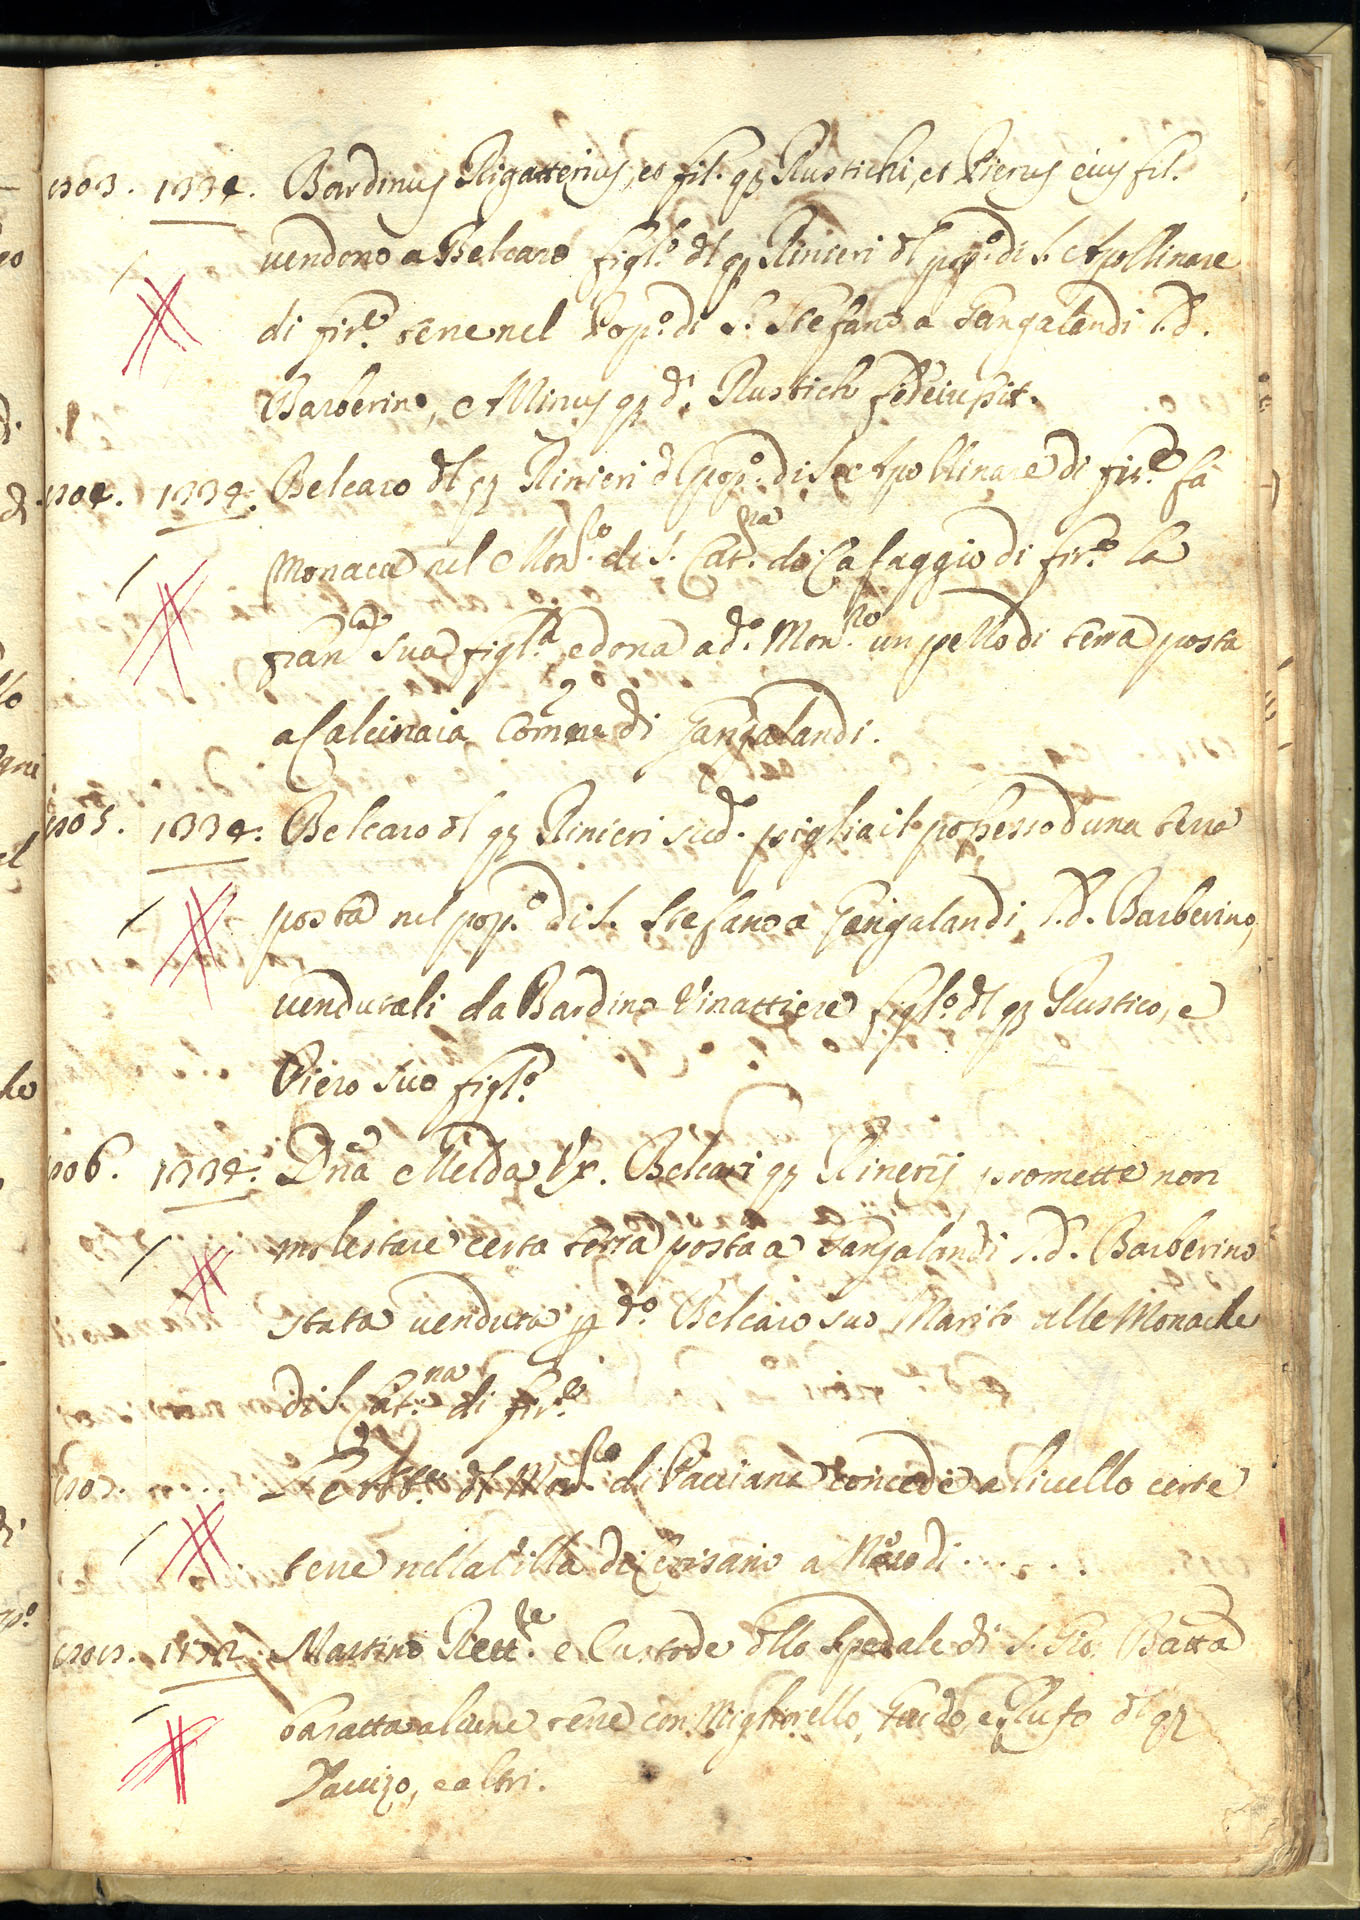 1203. 1334. Bardinus Rigatterius, et fil. qz Rustichi, et Pierus eius fil.
vendono a Belcaro figl.o dl qz Rinieri dl pop.o di S. Apollinare
di fir.e terre nel Pop.o di S. Stefano a Gangalandi l.d.
Barberino, e Minus qz d. Rustich fideiussit.
1204. 1334. Belcaro dl qz Rinieri dl pop.o di S. Apollinare di fir.e fa
Monaca nel Mon.ro di S. Cat.na di Cafaggio di fir.e la
fran.ca sua figl.a, e dona a d.o Mon.ro un pezzo di terra posta
a Calcinaia Comune di Gangalandi.
1205. 1334. Belcaro dl qz Rinieri sud.o piglia il possesso d una terra
posta nel pop.o di S. Stefano a Gangalandi, l.d. Barberino,
vendutali da Bardino Vinattiere figl.o dl qz Rustico, e
Piero suo figl.o
1206. 1334. Dna Melda Vx. Belcari qz Rinerij promette non
molestare certa terra posta a Gangalandi l.d. Barberino
stata venduta p d.o Belcaro suo Marito alle Monache
di S. Cat.na di fir.e
1207. L'Abb.e dl Mon.ro di Pacciana concede a livello certe
terre nella Villa di Crisano a di . . . . .
1172. Martino Rett.re e Custode dllo Spedale di S. Gio. Batta
baratta alcune terre con Migliorello, Guido, e Rufo dl qz
e altri.